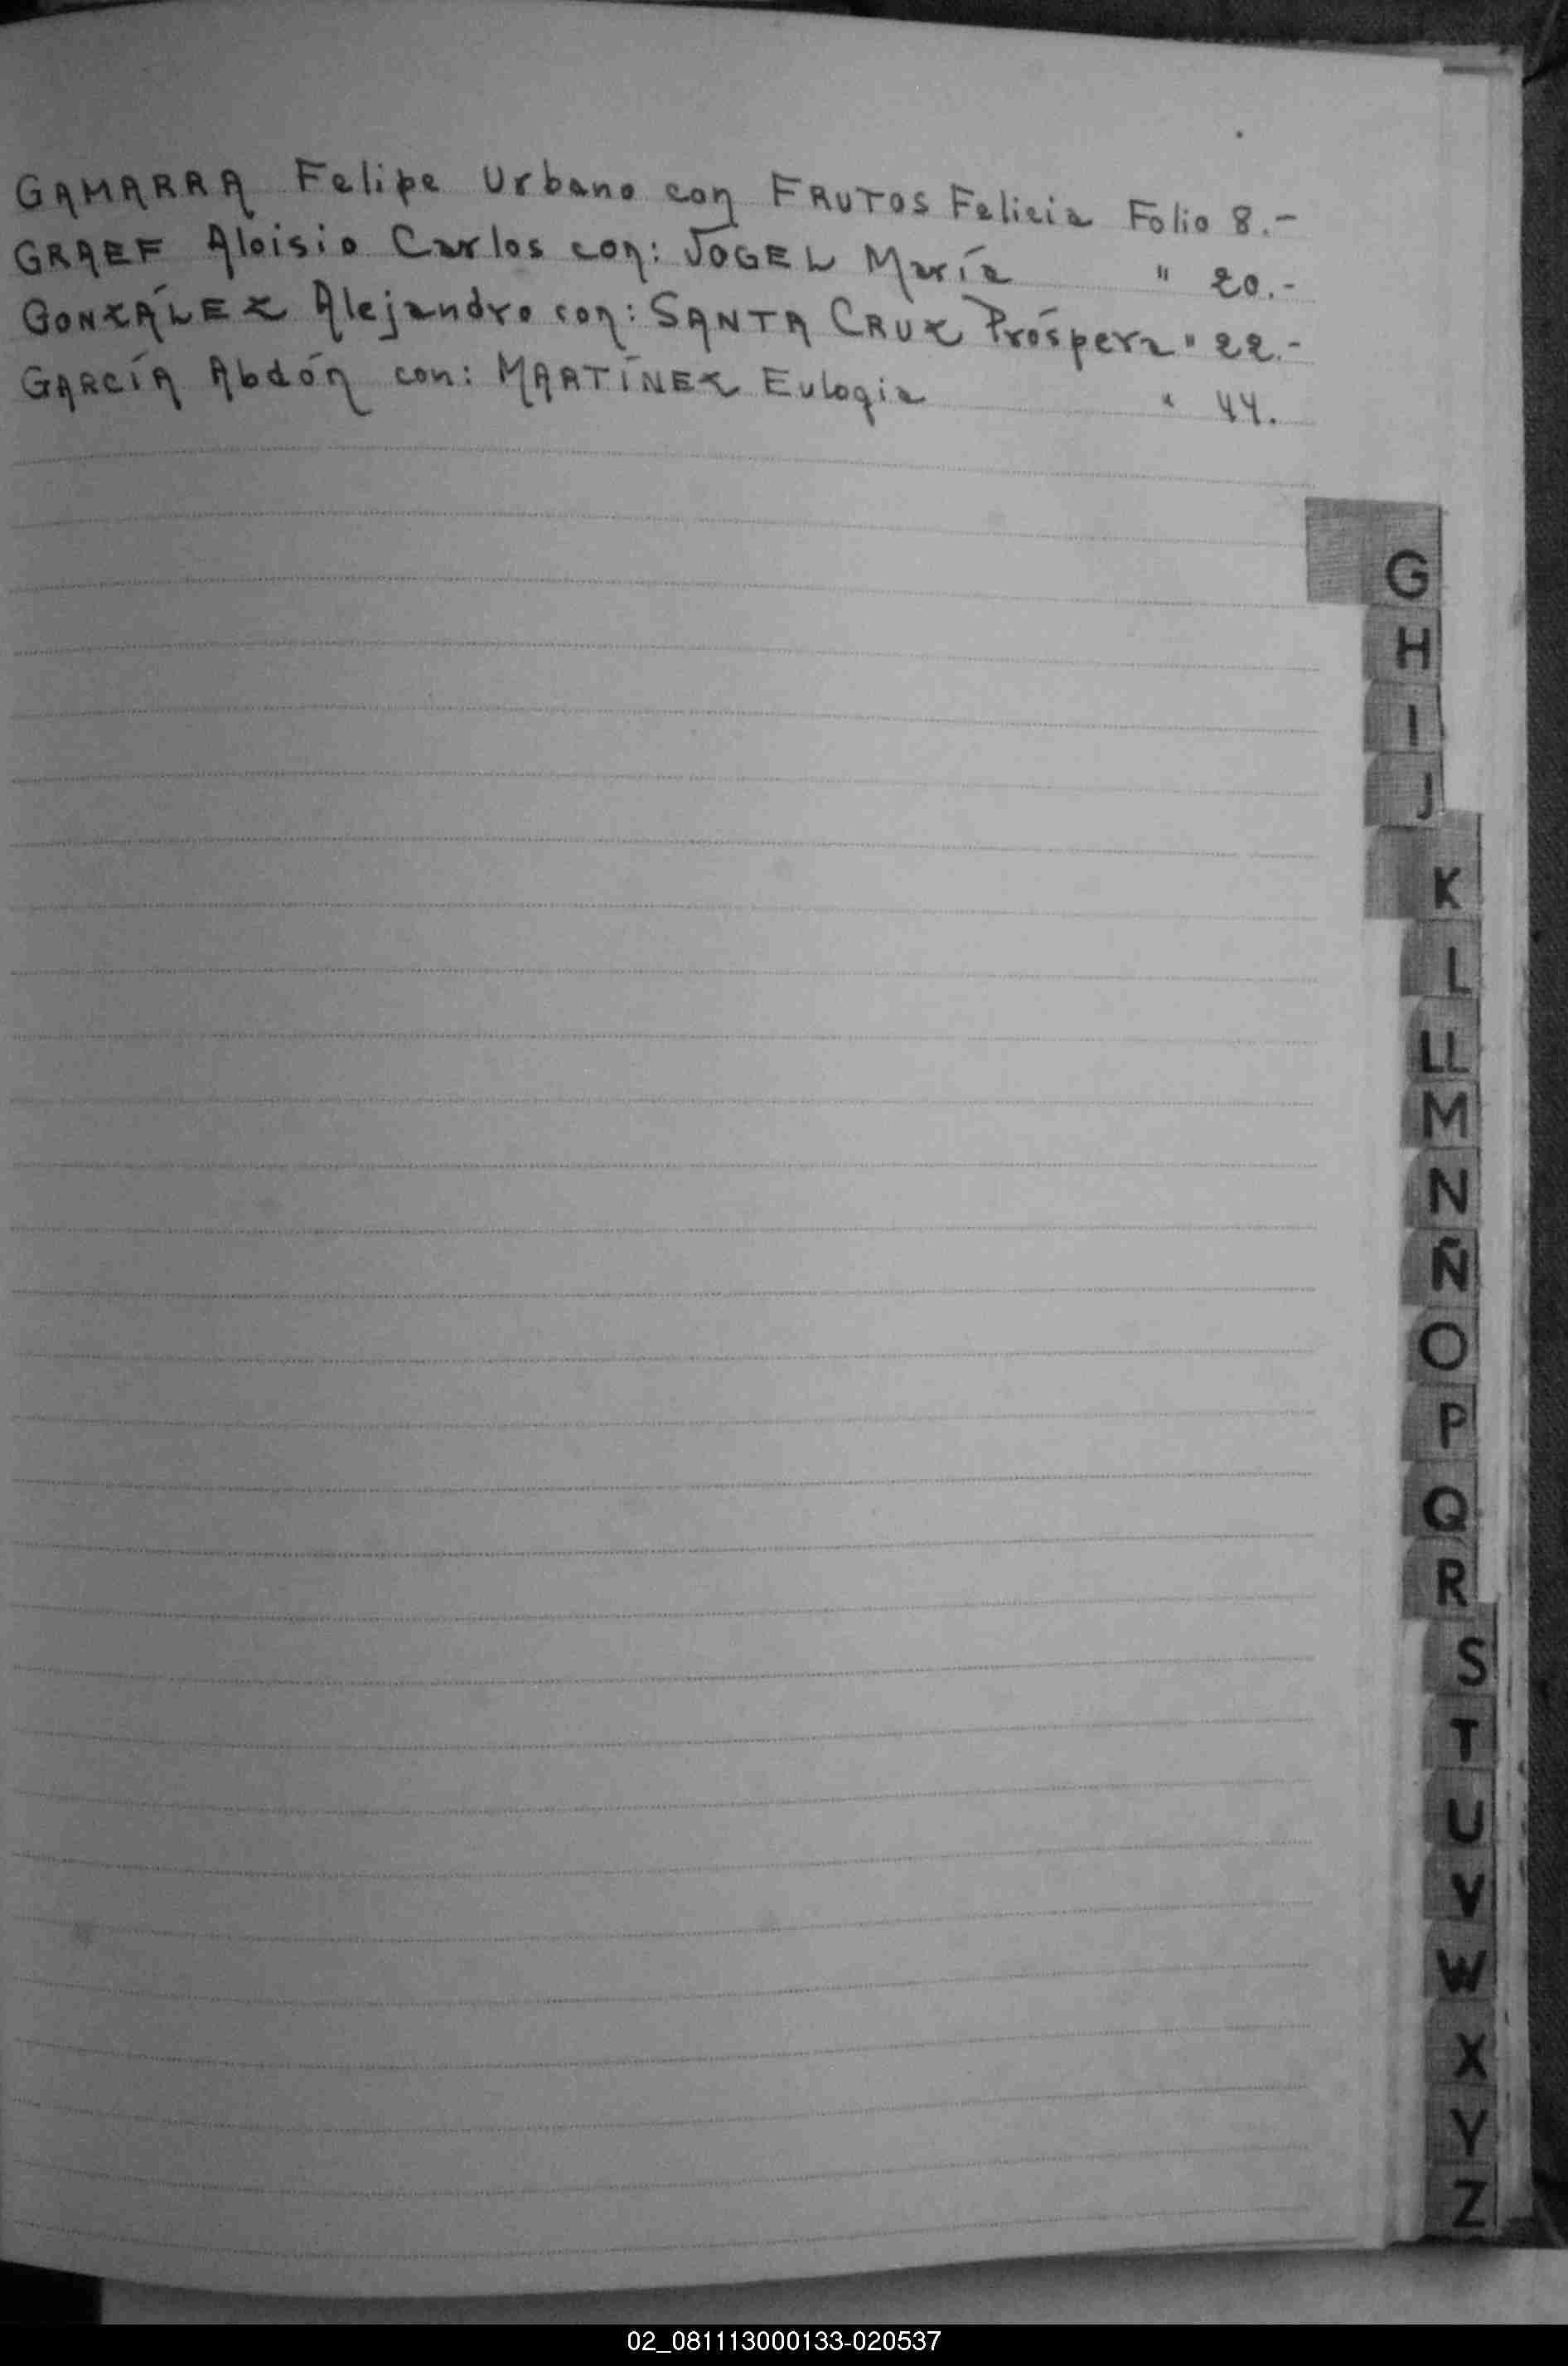 GAMARRA Felipe Urbano con FRUTOS Felicia Folio 8.-
GRAEF Aloisio Carlos con: JOGEL María " 20.-
GONZÁLEZ Alejandro con: SANTA CRUZ Próspera " 22.-
GARCÍA Abdón con: MARTÍNEZ Eulogia " 44.
G
H
I
J
K
L
LL
M
N
Ñ
O
P
Q
R
S
T
U
V
W
X
Y
Z
02_081113000133-020537